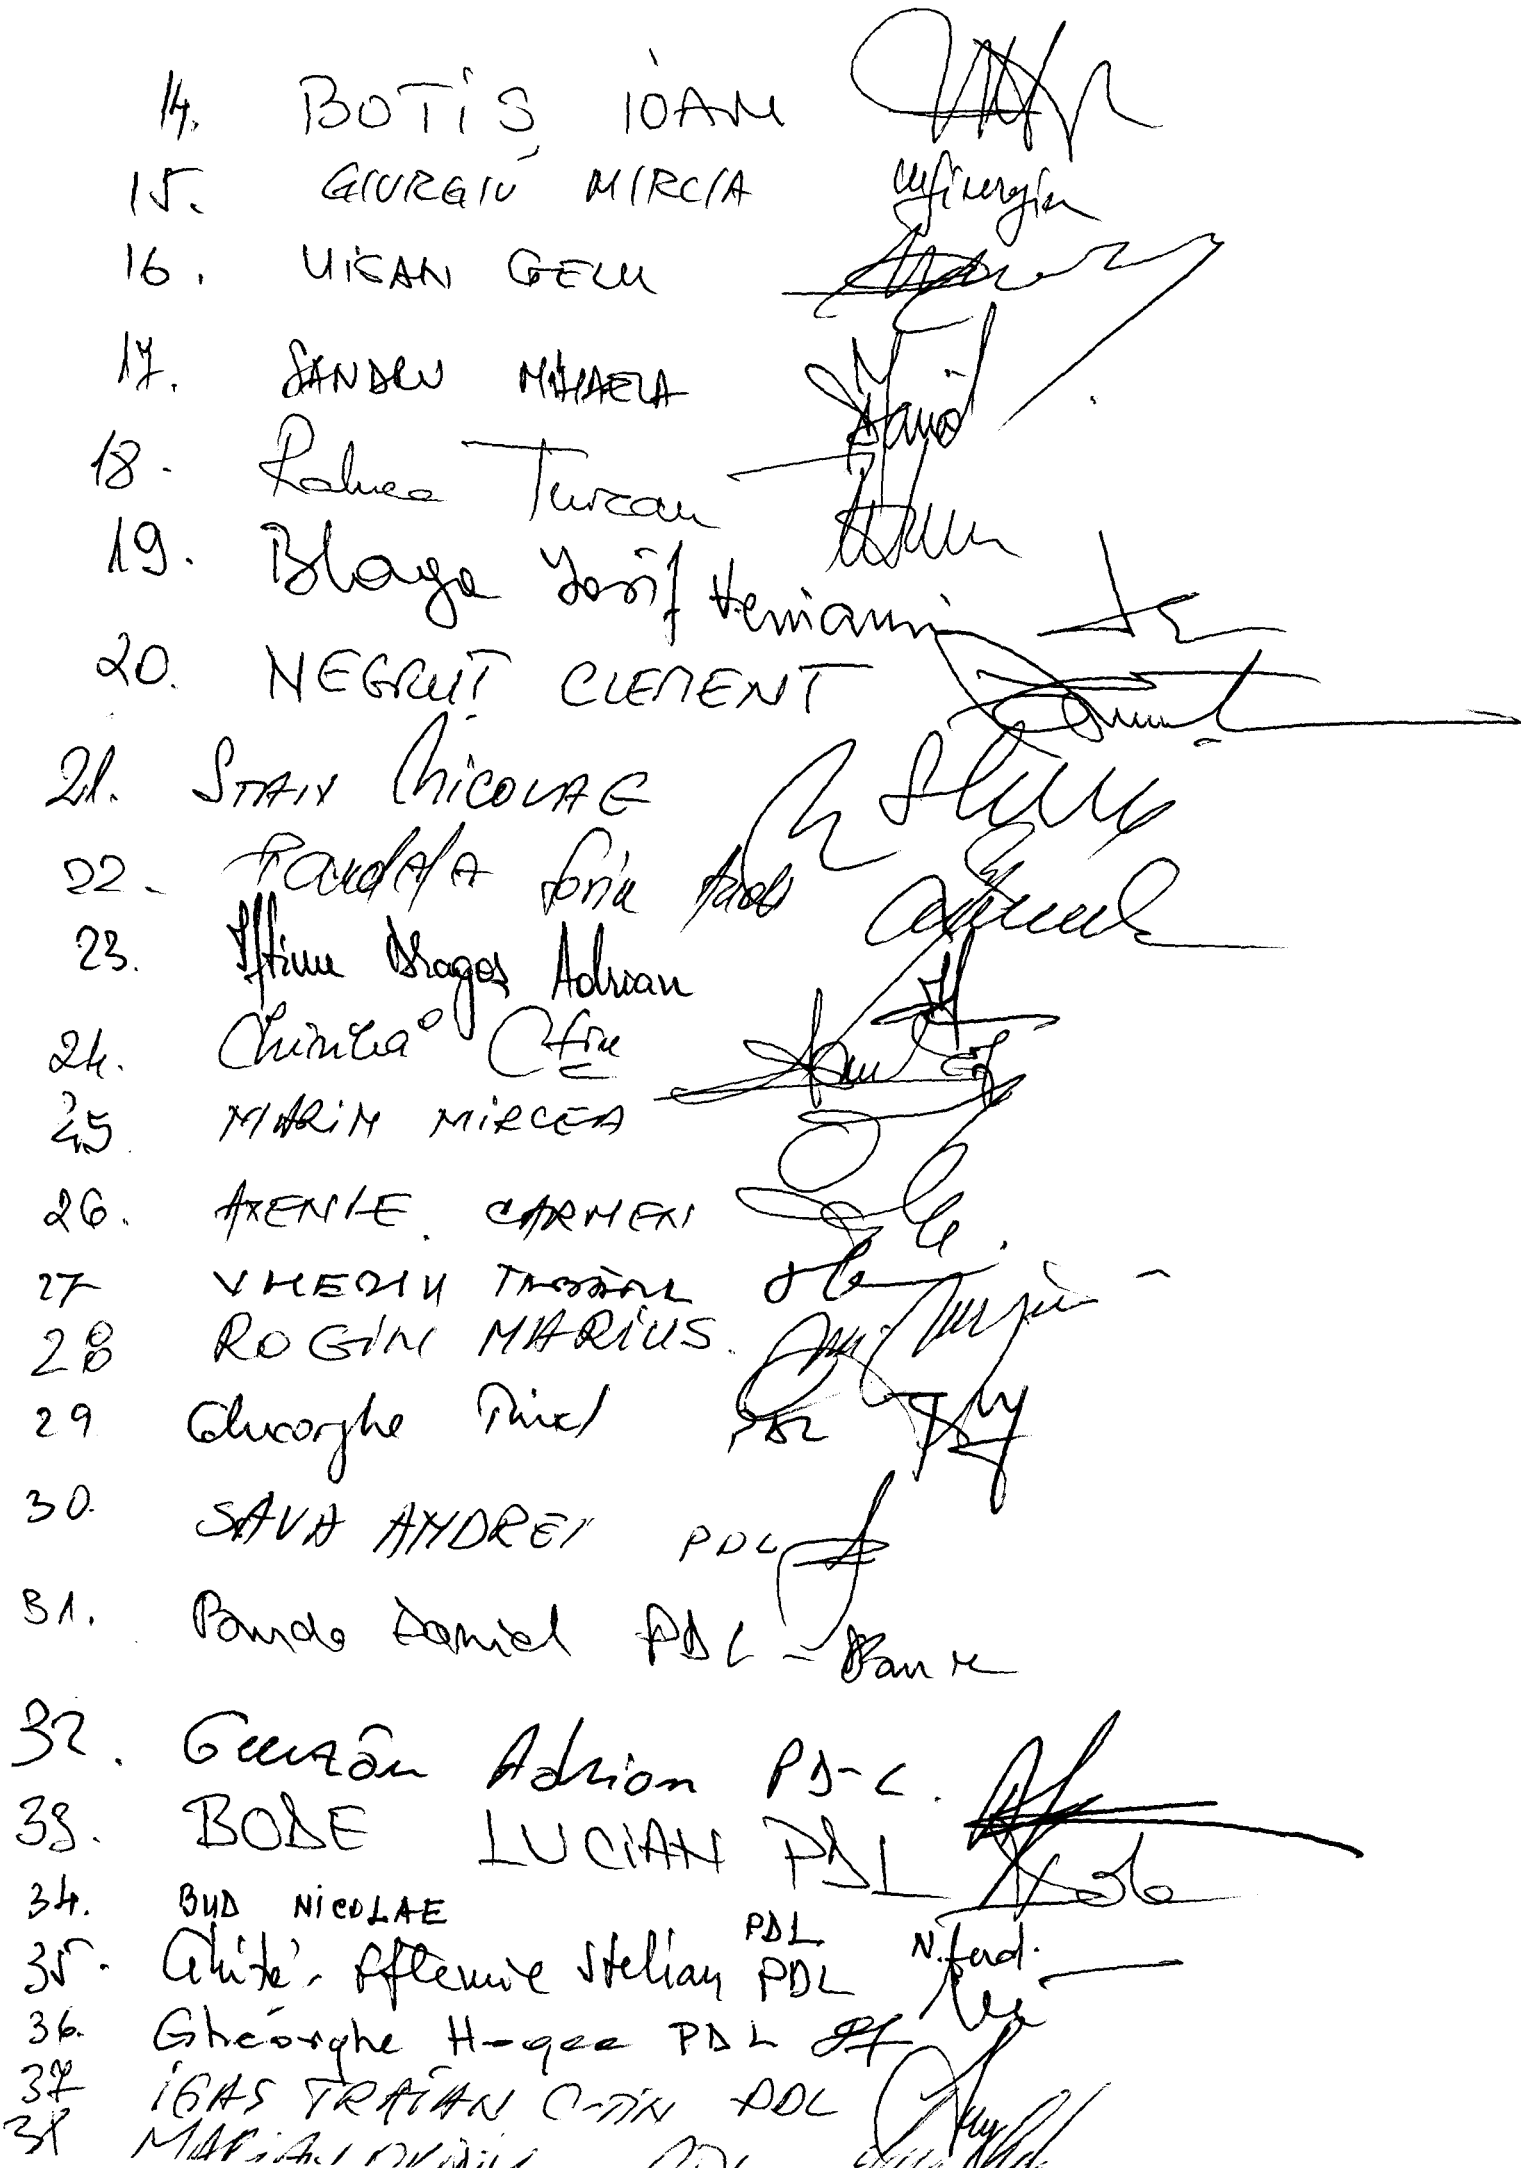 14. BOTIȘ IOAN
15. GIURGIU MIRCIA
16. VIȘAN GELU
17. SANDRU MIHAELA
18. Raluca Turcan
19. Blaga Iosif Veniamin
20. NEGRUȚ CLEMENT
21. STAN NICOLAE
22. PANDELE Sorin Andi
23. Iftime Dragoș Adrian
24. Chiriță
25 MARIN MIRCEA
26. AXENIE CARMEN
27 VALERIU TABĂRĂ
28 ROGIN MARIUS.
29 Gheorghe Tinel PDL
30. SAVA ANDREI PDL
31. Buda Daniel PDL
32. Gurzău Adrian PD-L.
33. BODE LUCIAN PDL
34. BUD NICOLAE PDL
35. Ghiță-Eftemie Stelian PDL
36. Gheorghe Hogea PDL
37 IGAȘ TRAIAN C-TIN PDL
38